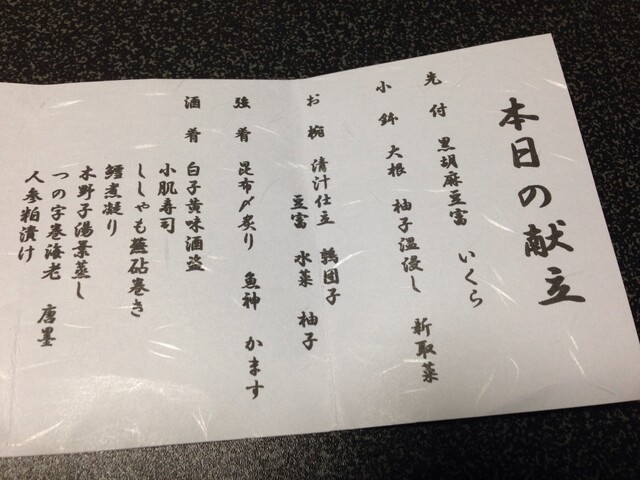 本日の献立
先付 黒胡麻豆富 いくら
小鉢 大根 柚子温浸し 新取菜
お椀 清汁仕立 鶉団子
豆富 水菜 柚子
強肴 昆布〆炙り 魚神 かます
酒肴 白子黄味酒盗
小肌寿司
ししゃも蕪砧巻き
鱈煮凝り
木野子湯葉蒸し
つの字巻海老 唐墨
人参粕漬け